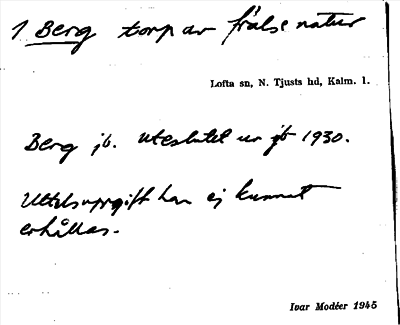 1 Berg torp av frälse natur
Lofta sn, N. Tjusts hd, Kalm. l.
Berg jb. uteslutet ur jb 1930.
Uttalsuppgift har ej kunnat
erhållas.
Ivar Modéer 1945